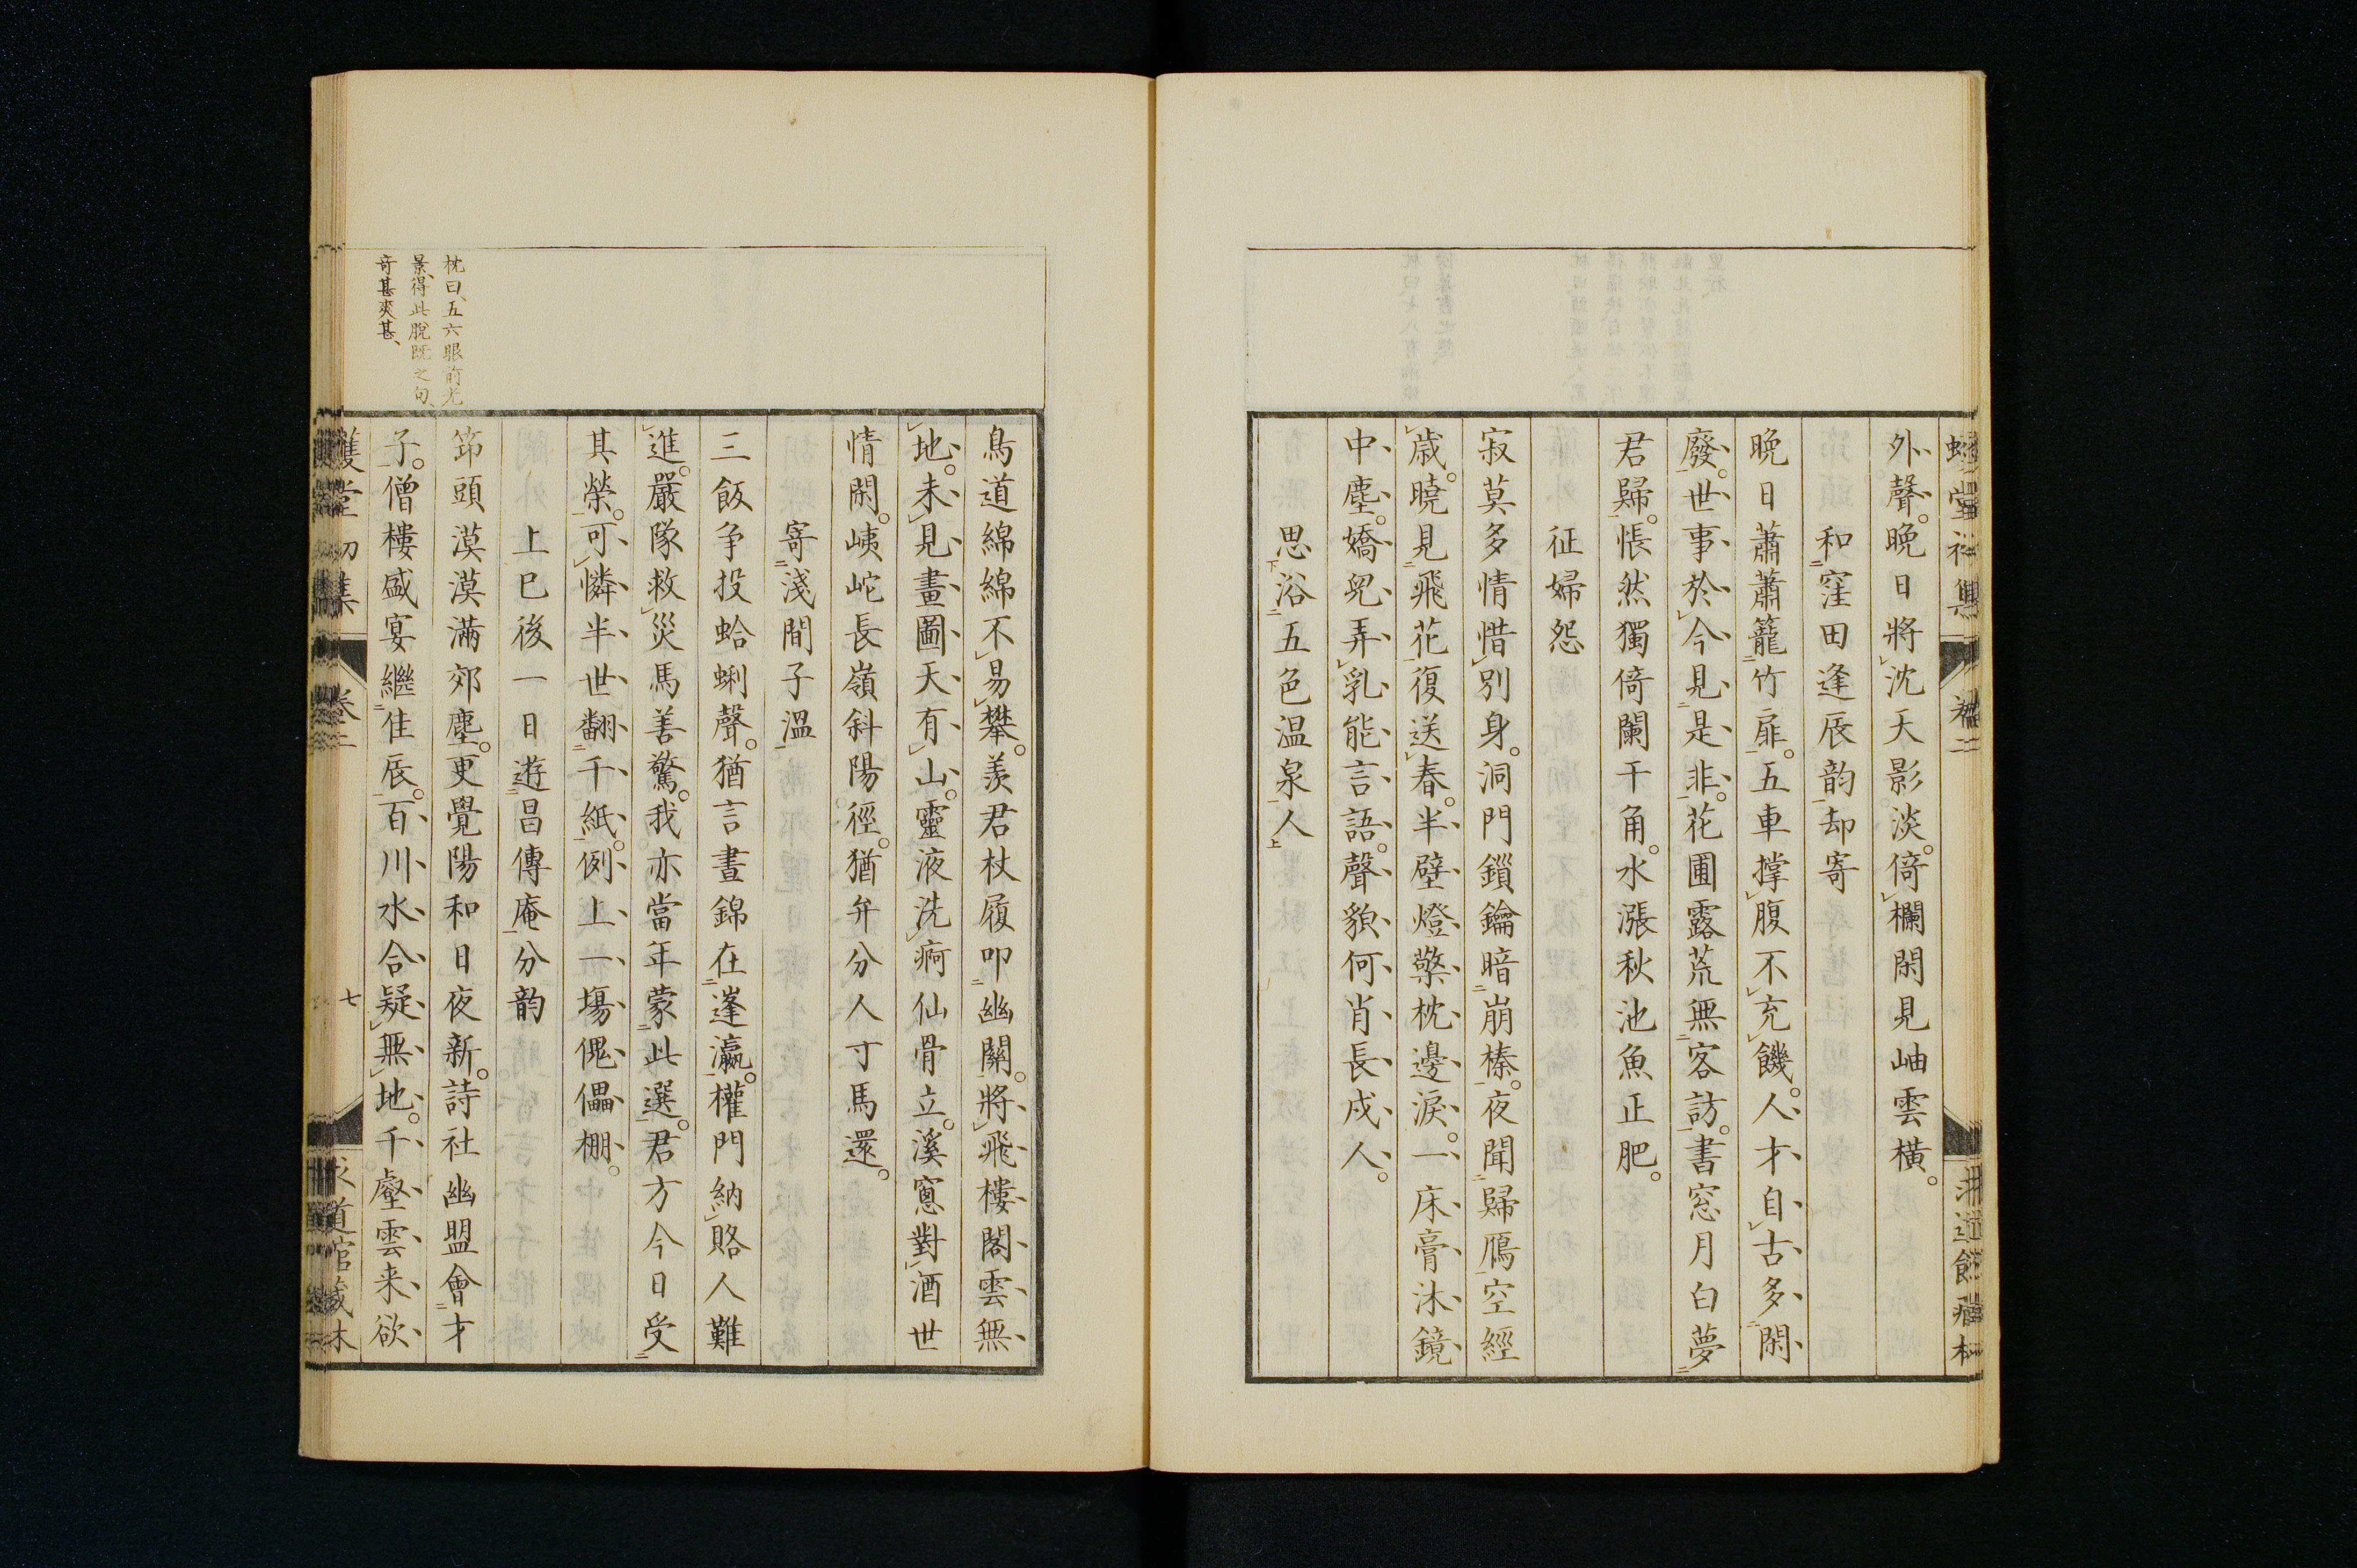 外聲晚日將沈天影淡倚欄閑見岫雲橫
和窪田逢辰韵却寄
晚日蕭蕭籠竹扉五車撑腹不充饑人才自古多閑
廢世事於今見是非花圃露荒無客訪書窓月白夢
君歸悵然獨倚闌干角水漲秋池魚正肥
征婦怨
寂莫多情惜別身洞門鎖鑰暗崩榛夜聞歸鴈空經
歳曉見飛花復送春半壁燈檠枕邊淚一床膏沐鏡
中塵嬌兒弄乳能言語聲貌何肖長戍人
思浴五色温泉人
鳥道綿綿不易攀羨君杖履叩幽關將飛樓閣雲無
地未見畫圖天有山靈液洗痾仙骨立溪窻對酒世
情閑峓岮長嶺斜陽徑猶弁分人寸馬還
寄淺間子温
三飯争投蛤蜊聲猶言晝錦在蓬瀛權門納賂人難
進嚴隊救災馬善驚我亦當年蒙此選君方今日受
其榮可憐半世翻千紙例上一場傀儡棚
上巳後一日遊昌傳庵分韵
笻頭漠漠滿郊塵更覺陽和日夜新詩社幽盟會才
子僧樓盛宴繼佳辰百川水合疑無地千壑雲来欲
枕曰五六眼前光
景得此脫既之句
奇甚爽甚
卷二
七
求道館藏本